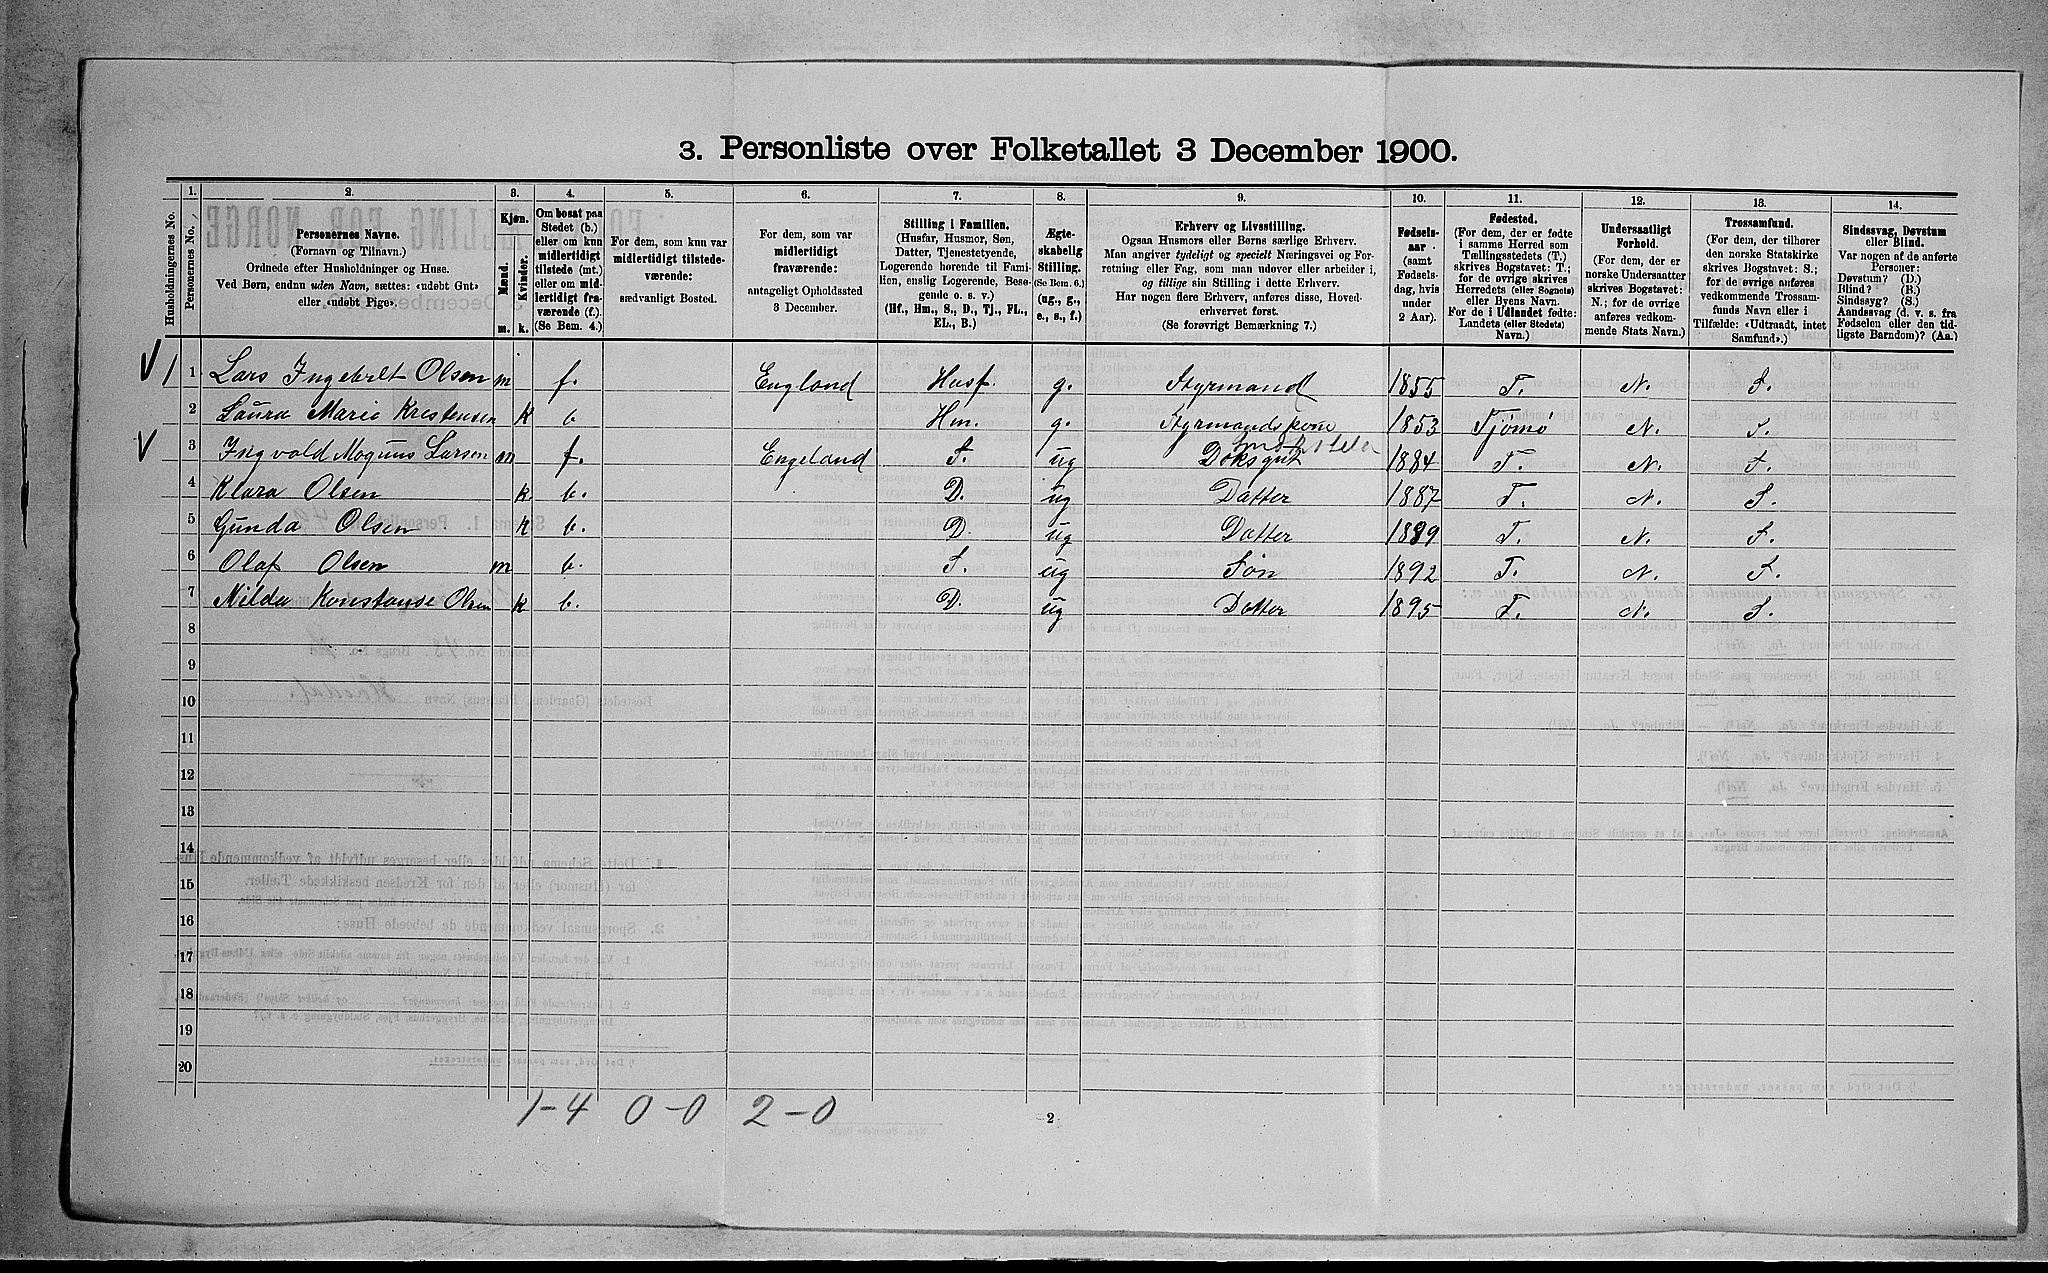 3. Personliste over Folketallet 3 December 1900.
1. 2. 3. 4. 5. 6. 7. 8. 9. 10. 11. 12. 13. 14.
Husholdningernes No.
Personernes No.
Personernes Navne.
(Fornavn og Tilnavn).
Ordnede efter Husholdninger og Huse.
Ved Børn, endnu uden Navn, sættes: «udøbt Gut»
eller «udøbt Pige».
Kjøn.
Mænd.
Kvinder.
m. k.
Om bosat paa
Stedet (b.)
eller om kun
midlertidigt
tilstede (mt.)
eller om mid-
lertidigt fra-
værende (f.).
(Se Bem. 4.)
For dem, som kun var
midlertidigt tilstede-
værende:
sædvanligt Bosted.
For dem, som var
midlertidigt
fraværende:
antageligt Opholdssted
3 December.
Stilling i Familien.
(Husfar, Husmor, Søn,
Datter, Tjenestetyende,
Logerende hørende til Fami-
lien, enslig Logerende, Besø-
gende o. s. v.)
(Hf., Hm., S., D., Tj., FL.,
EL., B.)
Ægte-
skabelig
Stilling.
(Se Bem. 6.)
(ug., g.,
e., s., f.)
Erhverv og Livsstilling.
Ogsaa Husmors eller Børns særlige Erhverv.
Man angiver tydeligt og specielt Næringsvei og For-
retning eller Fag, som man udøver eller arbeider i,
og tillige sin Stilling i dette Erhverv.
Har nogen flere Erhverv, anføres disse, Hoved-
erhvervet først.
(Se forøvrigt Bemærkning 7.)
Fødsels-
aar
(samt
Fødsels-
dag, hvis
under
2 Aar).
Fødested.
(For dem, der er fødte
i samme Herred som
Tællingsstedets (T.)
skrives Bogstavet: T.;
for de øvrige skrives
Herredets (eller Sognets)
eller Byens Navn.
For de i Udlandet fødte:
Landets (eller Stedets)
Navn.)
Undersaatligt
Forhold.
(For dem, der er
norske Undersaatter
skrives Bogstavet:
N.; for de øvrige
anføres vedkom-
mende Stats Navn.)
Trossamfund.
(For dem, der tilhører
den norske Statskirke
skrives Bogstavet: S.;
for de øvrige anføres
vedkommende Trossam-
funds Navn eller i
Tilfælde: «Udtraadt, intet
Samfund».)
Sindssvag, Døvstum
eller Blind.
Var nogen af de anførte
Personer:
Døvstum? (D.)
Blind? (B.)
Sindssyg? (S.)
Aandssvag (d. v. s. fra
Fødselen eller den tid-
ligste Barndom)? (Aa.)
1 1 Lars Ingebrelt Olsen m f. England Husf. g. Styrmand 1855 T. N. S.
2 Laura Marie Kristensen k b Hm. g. Styrmandskone 1853 Tjømø N. S.
3 Ingvald Magnus Larsen m f. Engeland S. ug Doksgut 1884 T. N. S.
4 Klara Olsen k b. D. ug Datter 1887 T. N. S.
5 Gunda Olsen k b. D. ug Datter 1889 T. N. S.
6 Olaf Olsen m b. S. ug Søn 1892 T. N. S.
7 Nilda Konstanse Olsen k b. D. ug Datter 1895 T. N. S.
8
9
10
11
12
13
14
15
16
17
18
19
20
1-4 0-0 2-0
2